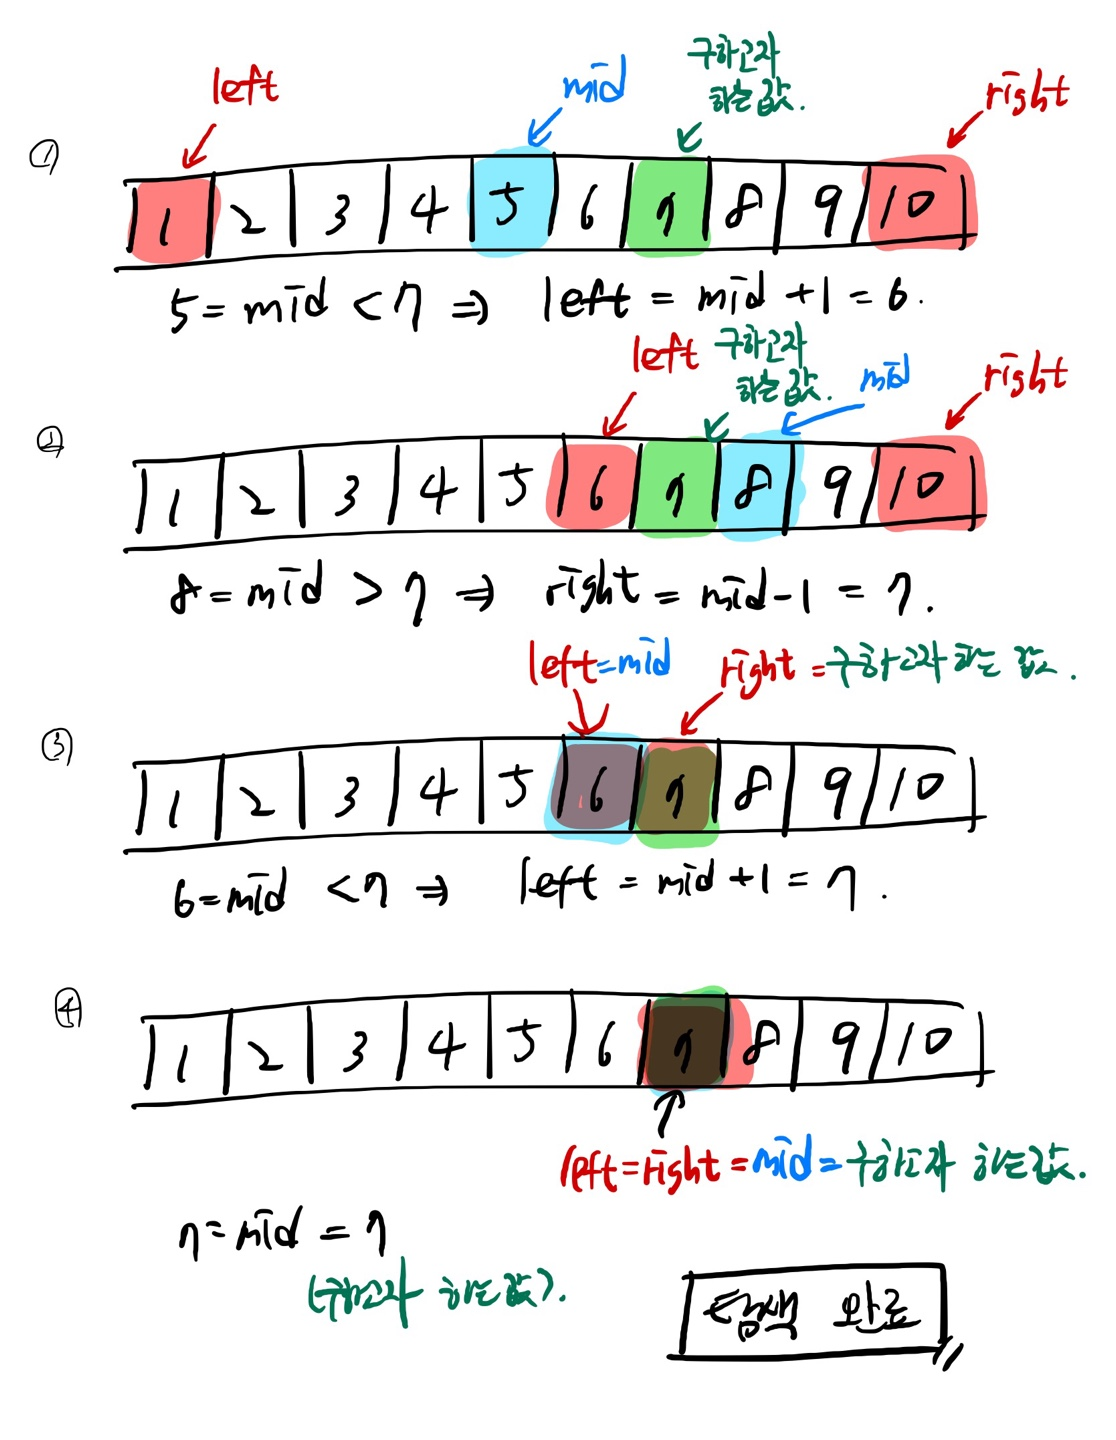 left mid 구하고자 right
하는 값.
① 1 2 3 4 5 6 7 8 9 10
5 = mid < 7 ⇒ left = mid + 1 = 6.
left 구하고자 mid right
하는 값.
② 1 2 3 4 5 6 7 8 9 10
8 = mid > 7 ⇒ right = mid - 1 = 7.
left = mid right = 구하고자 하는 값.
③ 1 2 3 4 5 6 7 8 9 10
6 = mid < 7 ⇒ left = mid + 1 = 7.
④ 1 2 3 4 5 6 7 8 9 10
left = right = mid = 구하고자 하는 값.
7 = mid = 7
(구하고자 하는 값).
탐색 완료